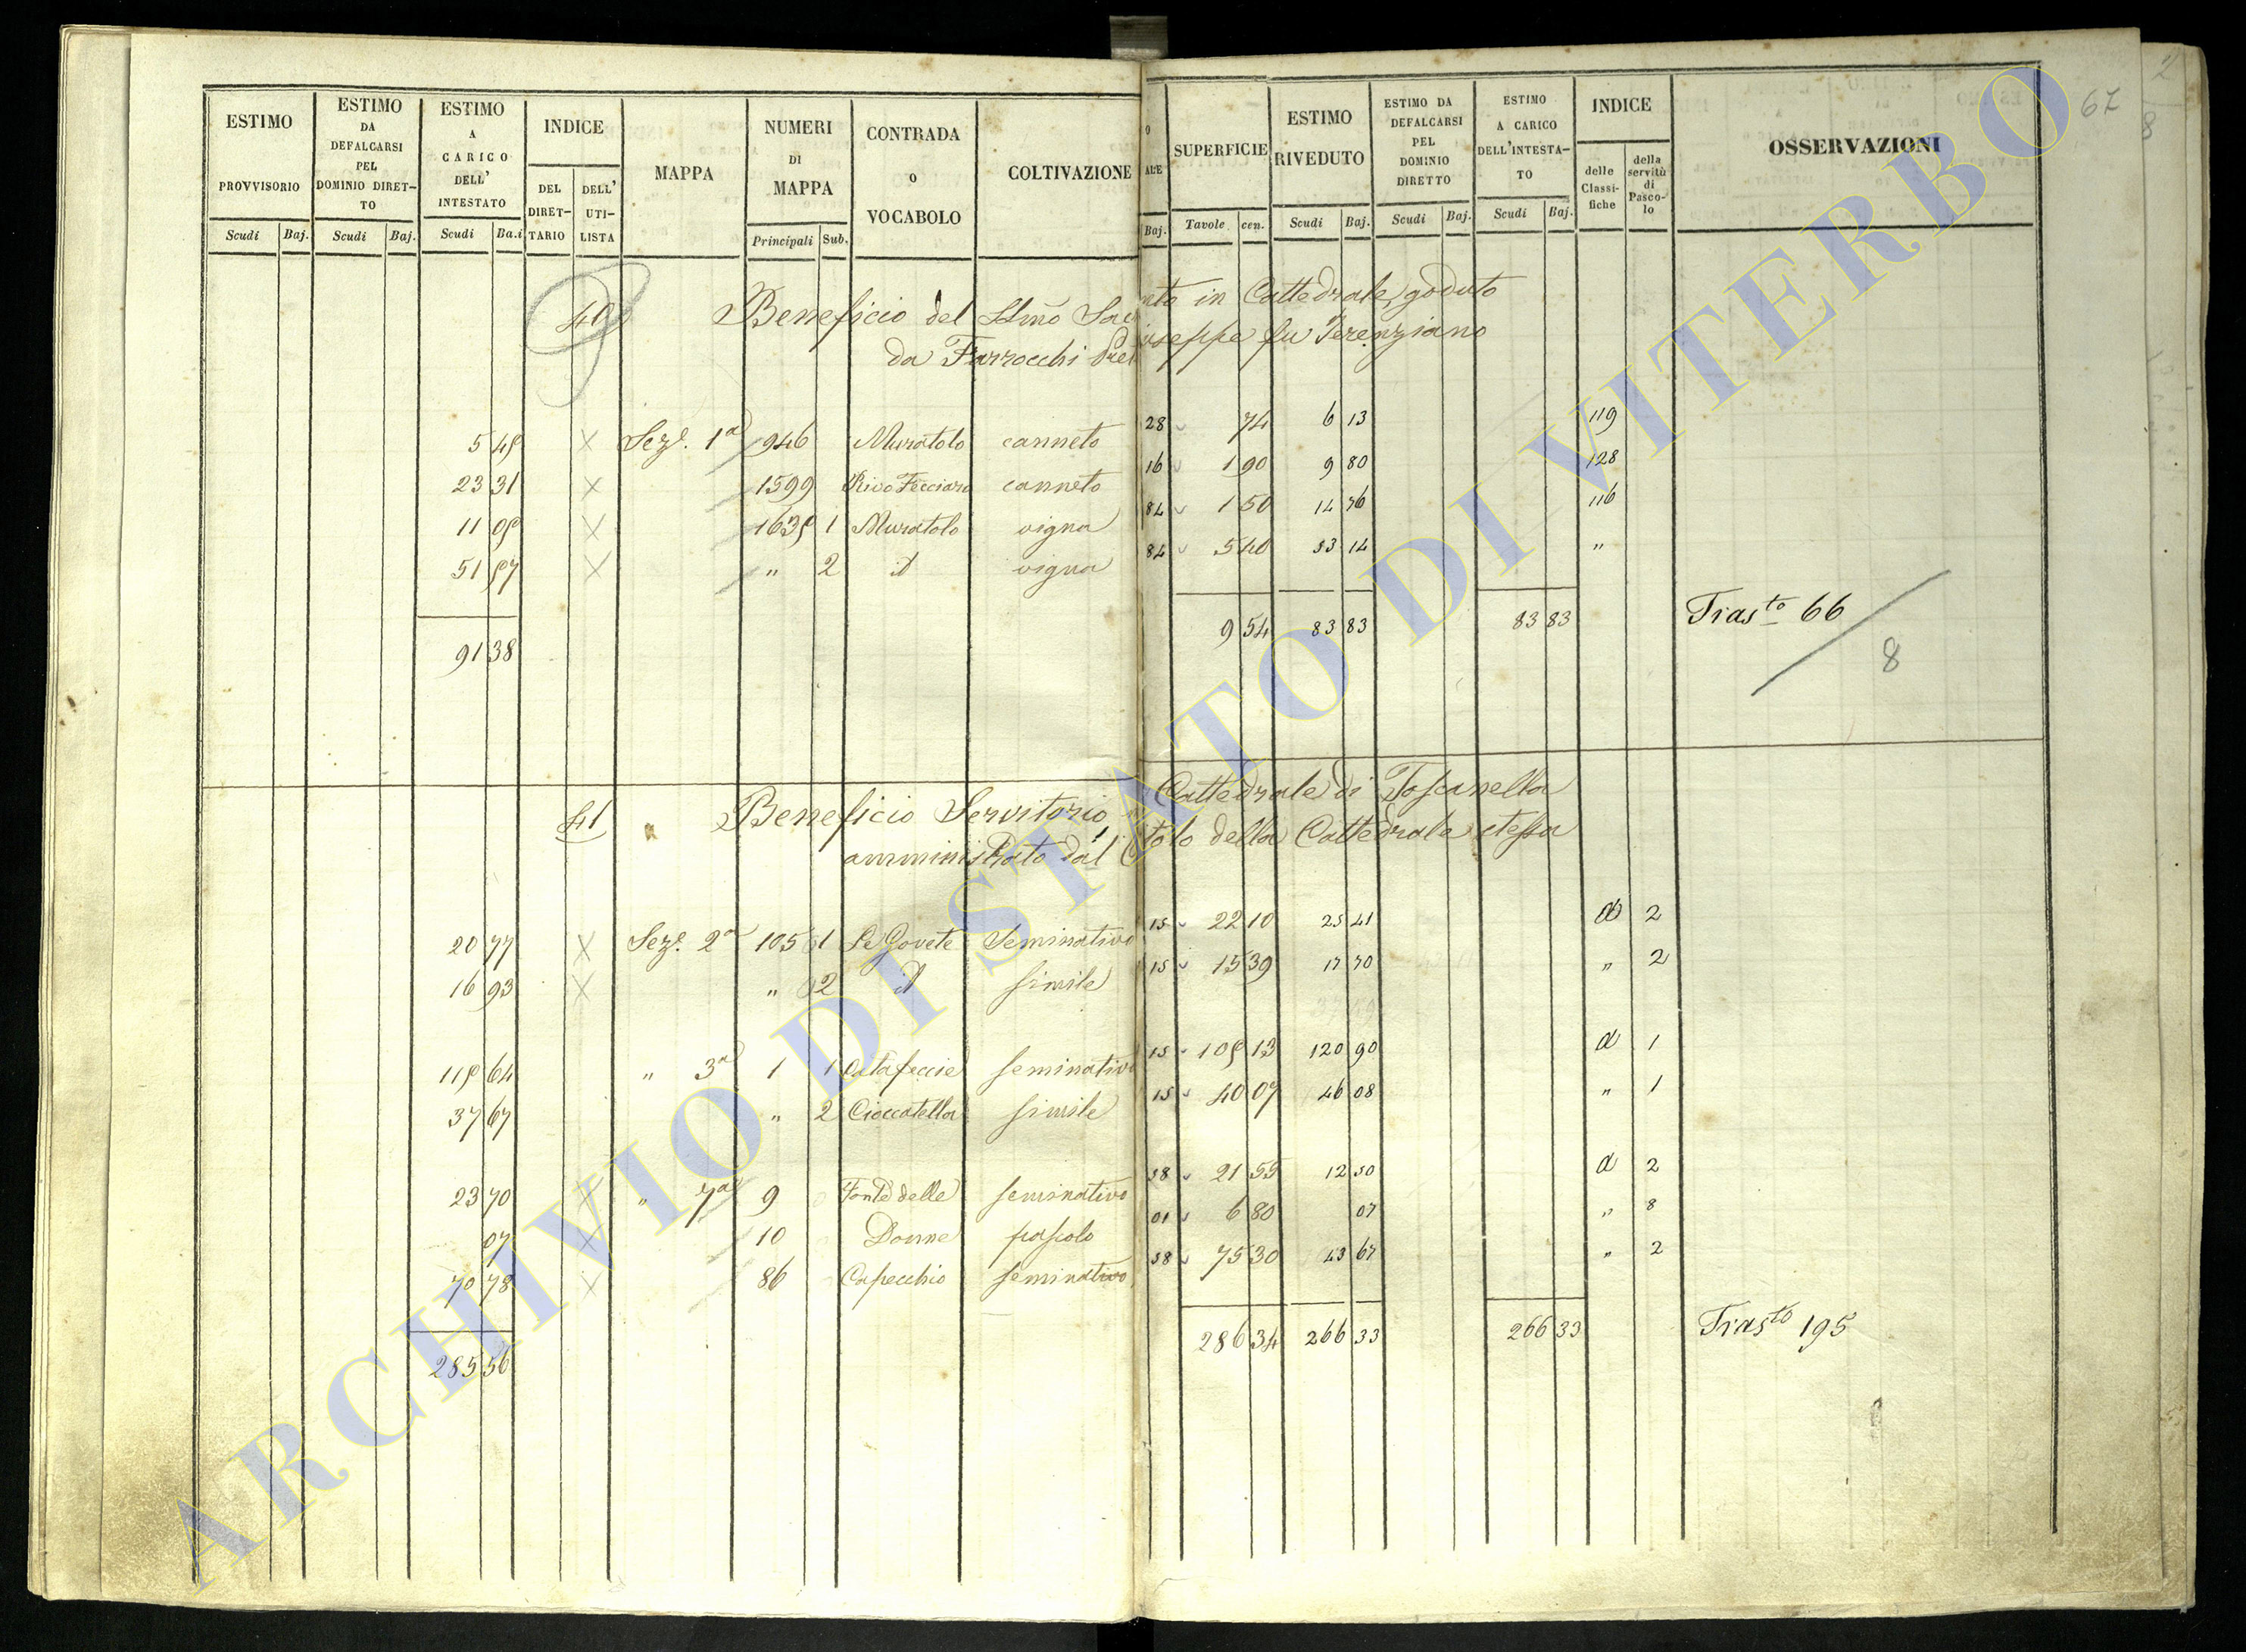 ESTIMO PROVVISORIO | ESTIMO DA DEFALCARSI PEL DOMINIO DIRET-TO | ESTIMO A CARICO DELL' INTESTATO | INDICE | MAPPA | NUMERI DI MAPPA | CONTRADA O VOCABOLO | COLTIVAZIONE | SUPERFICIE | ESTIMO RIVEDUTO | ESTIMO DA DEFALCARSI PEL DOMINIO DIRETTO | ESTIMO A CARICO DELL'INTESTA-TO | INDICE | OSSERVAZIONI
DEL DIRET-TARIO | DELL' UTI-LISTA | delle Classi-fiche | della servitù di Pasco-lo
Scudi | Baj. | Scudi | Baj. | Scudi | Ba.i | Principali | Sub. | Baj. | Tavole | cen. | Scudi | Baj. | Scudi | Baj. | Scudi | Baj.
67
2
8
40 Beneficio del SSmo Sac nto in Cattedrale, goduto
da Farrocchi iuseppe fu Terenziano
5 45 × Seze. 1a 946 Muratolo canneto 28 74 6 13 119
23 31 × 1599 Rivo Fecciaro canneto 16 1 90 9 80 128
11 05 × 1635 1 Muratolo vigna 84 1 50 14 76 116
51 57 × " 2 id vigna 84 5 40 53 14 "
91 38 9 54 83 83 83 83 Trasto 66
8
41 Beneficio Servitorio Cattedrale di Toscanella
amministrato dal C tolo della Cattedrale stessa
20 77 × Seze. 2a 105 1 Le Govete Seminativo 15 22 10 25 41 a 2
16 93 × " 2 id simile 15 15 39 17 70 " 2
115 64 " 3a 1 1 seminativo 15 105 13 120 90 a 1
37 67 " 2 Cioccatella simile 15 40 07 46 08 " 1
23 70 × " 7a 9 Fonte delle seminativo 58 21 55 12 50 a 2
07 × 10 Donne pascolo 01 6 80 07 " 8
70 78 × 86 Capecchio seminativo 58 75 30 43 67 " 2
285 56 286 34 266 33 266 33 Trasto 195
ARCHIVIO DI STATO DI VITERBO